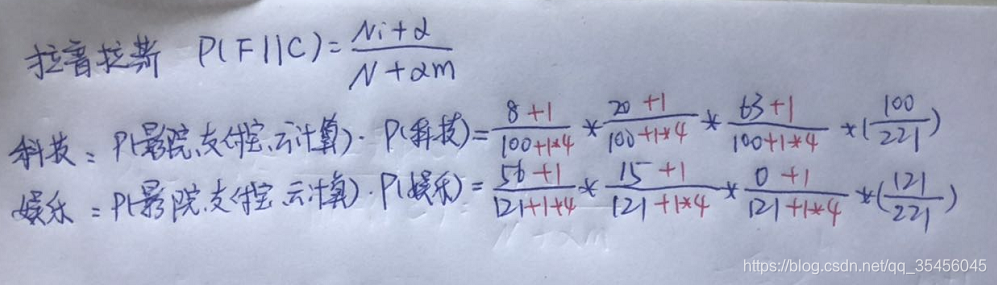 拉普拉斯 P(F1|C)=Ni+α/N+αm
科技：P(影院,支付宝,云计算)·P(科技)=8+1/100+1*4*20+1/100+1*4*63+1/100+1*4*(100/221)
娱乐：P(影院,支付宝,云计算)·P(娱乐)=56+1/121+1*4*15+1/121+1*4*0+1/121+1*4*(121/221)
N+αm
https://blog.csdn.net/qq_35456045